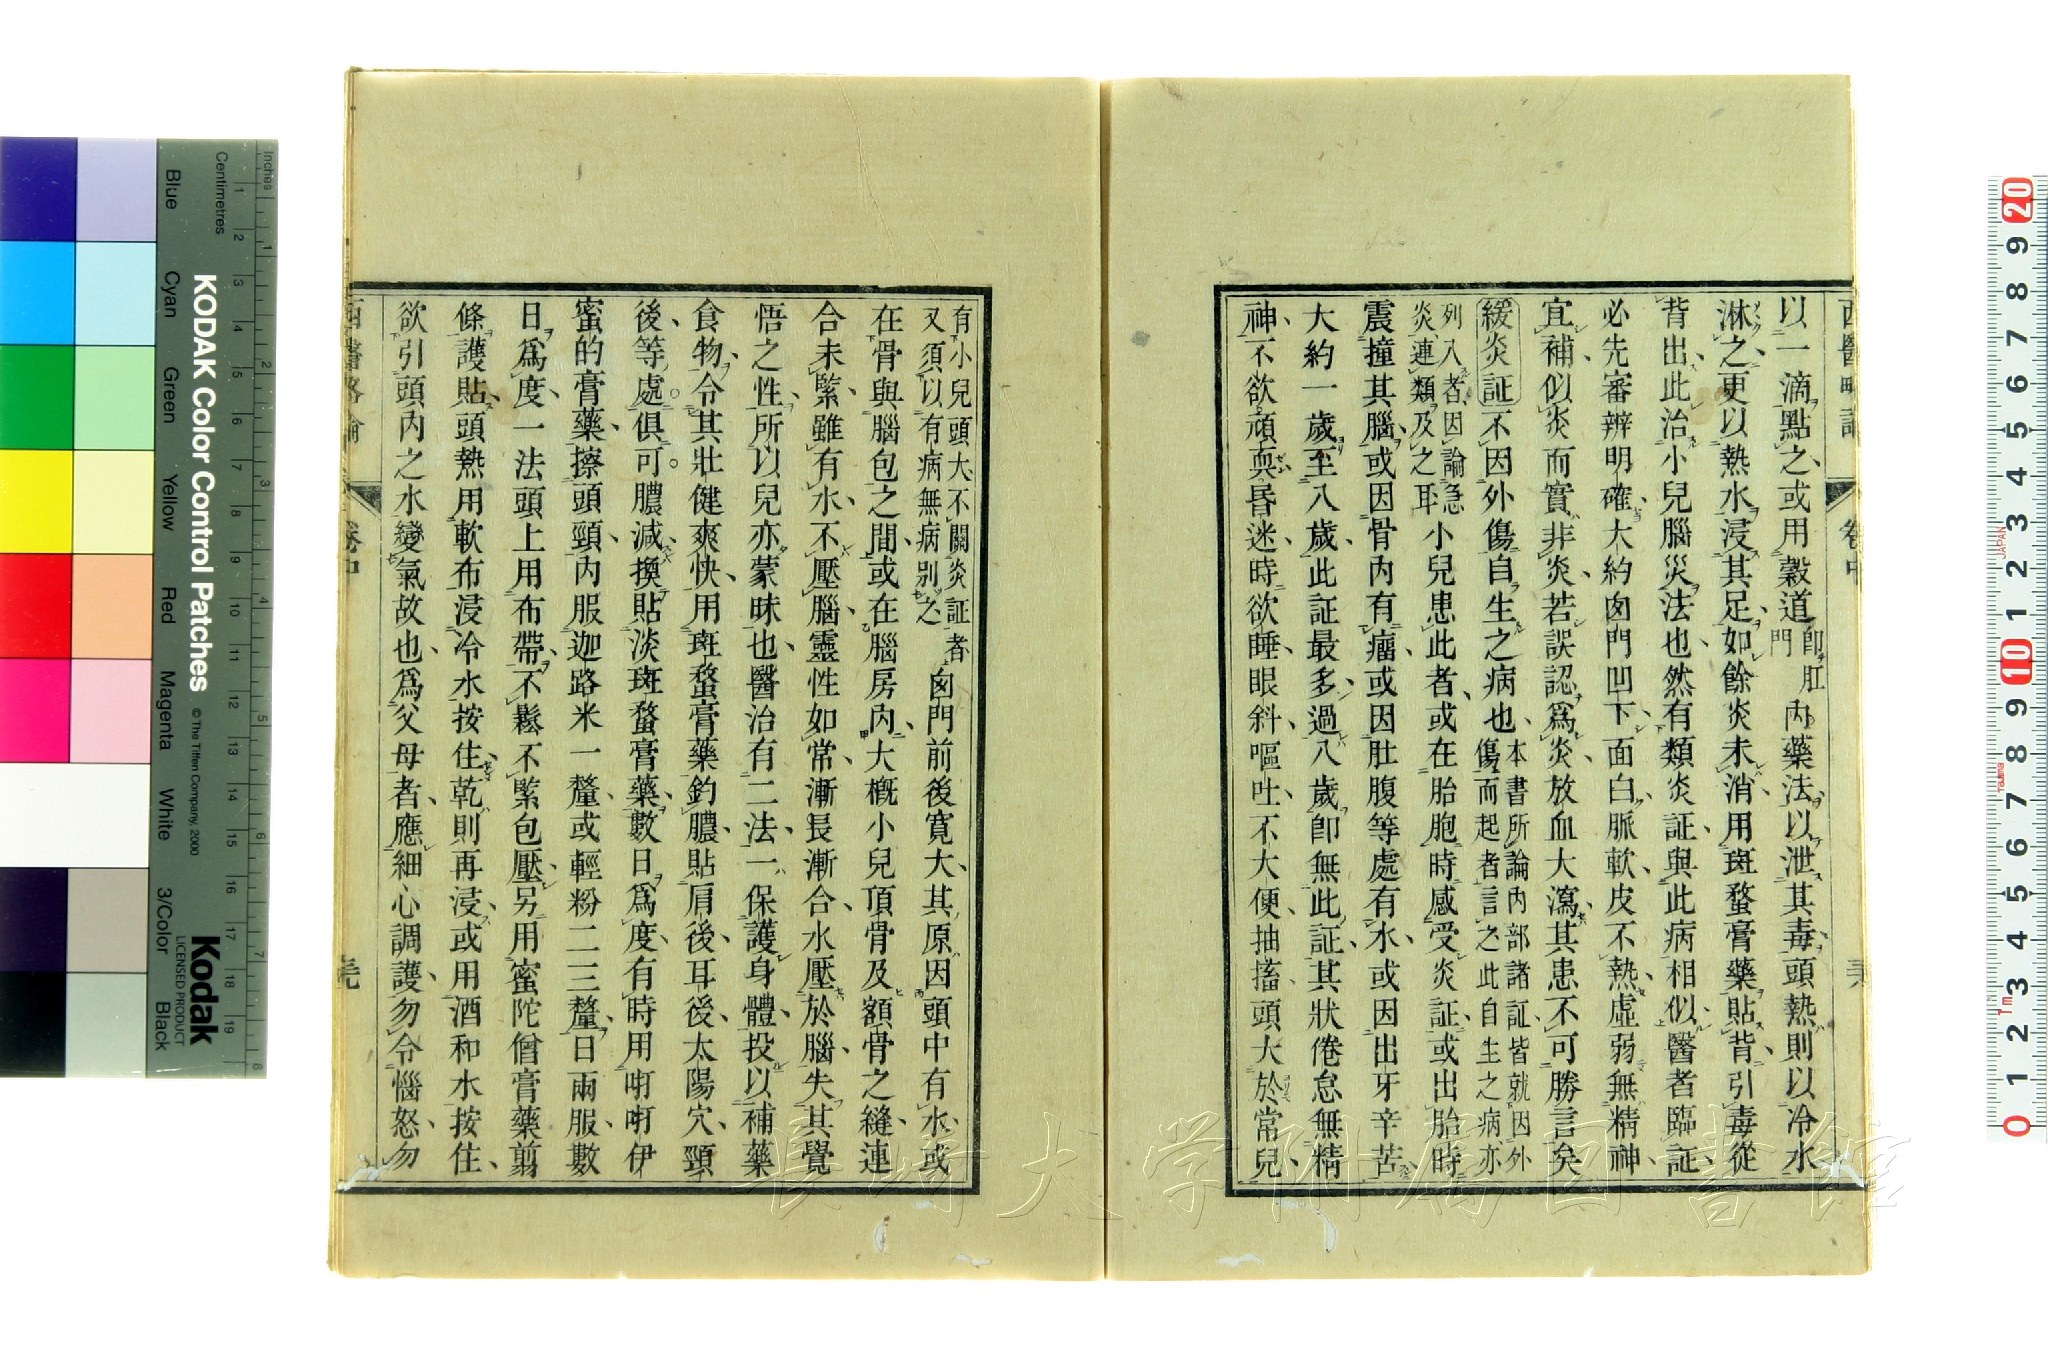 西醫略論
卷中
以一滴點之或用穀道即肛門內藥法以泄其毒頭熱則以冷水
淋之更以熱水浸其足如餘炎未消用斑蝥膏藥貼背引毒從
背出此治小兒腦炎法也然有類炎証與此病相似醫者臨証
必先審辨明確大約囟門凹下面白脈軟皮不熱虛弱無精神
宜補似炎而實非炎若誤認爲炎放血大瀉其患不可勝言矣
緩炎証不因外傷自生之病也本書所論內部諸証皆就因外傷而起者言之此自生之病亦
列入者因論急炎連類及之耳小兒患此者或在胎胞時感受炎証或出胎時
震撞其腦或因骨內有瘤或因肚腹等處有水或因出牙辛苦
大約一歲至八歲此証最多過八歲卽無此証其狀倦怠無精
神不欲頑耍昏迷時欲睡眼斜嘔吐不大便抽搐頭大於常兒
有小兒頭大不關炎証者又須以有病無病別之囟門前後寬大其原因頭中有水或
在骨與腦包之間或在腦房內大概小兒頂骨及額骨之縫連
合未緊雖有水不壓腦靈性如常漸長漸合水壓於腦失其覺
悟之性所以兒亦蒙昧也醫治有二法一保護身體投以補藥
食物令其壯健爽快用斑蝥膏藥釣膿貼肩後耳後太陽穴頸
後等處俱可膿減換貼淡斑蝥膏藥數日爲度有時用㖿㖿伊
蜜的膏藥擦頭頸內服迦路米一釐或輕粉二三釐日兩服數
日爲度一法頭上用布帶不鬆不緊包壓另用蜜陀僧膏藥剪
條護貼頭熱用軟布浸冷水按住乾則再浸或用酒和水按住
欲引頭內之水變氣故也爲父母者應細心調護勿令惱怒勿
西醫略論
卷中
KODAK Color Control Patches
© The Tiffen Company, 2000
Kodak
LICENSED PRODUCT
Inches
Centimetres
Blue
Cyan
Green
Yellow
Red
Magenta
White
3/Color
Black
長崎大学附属図書館